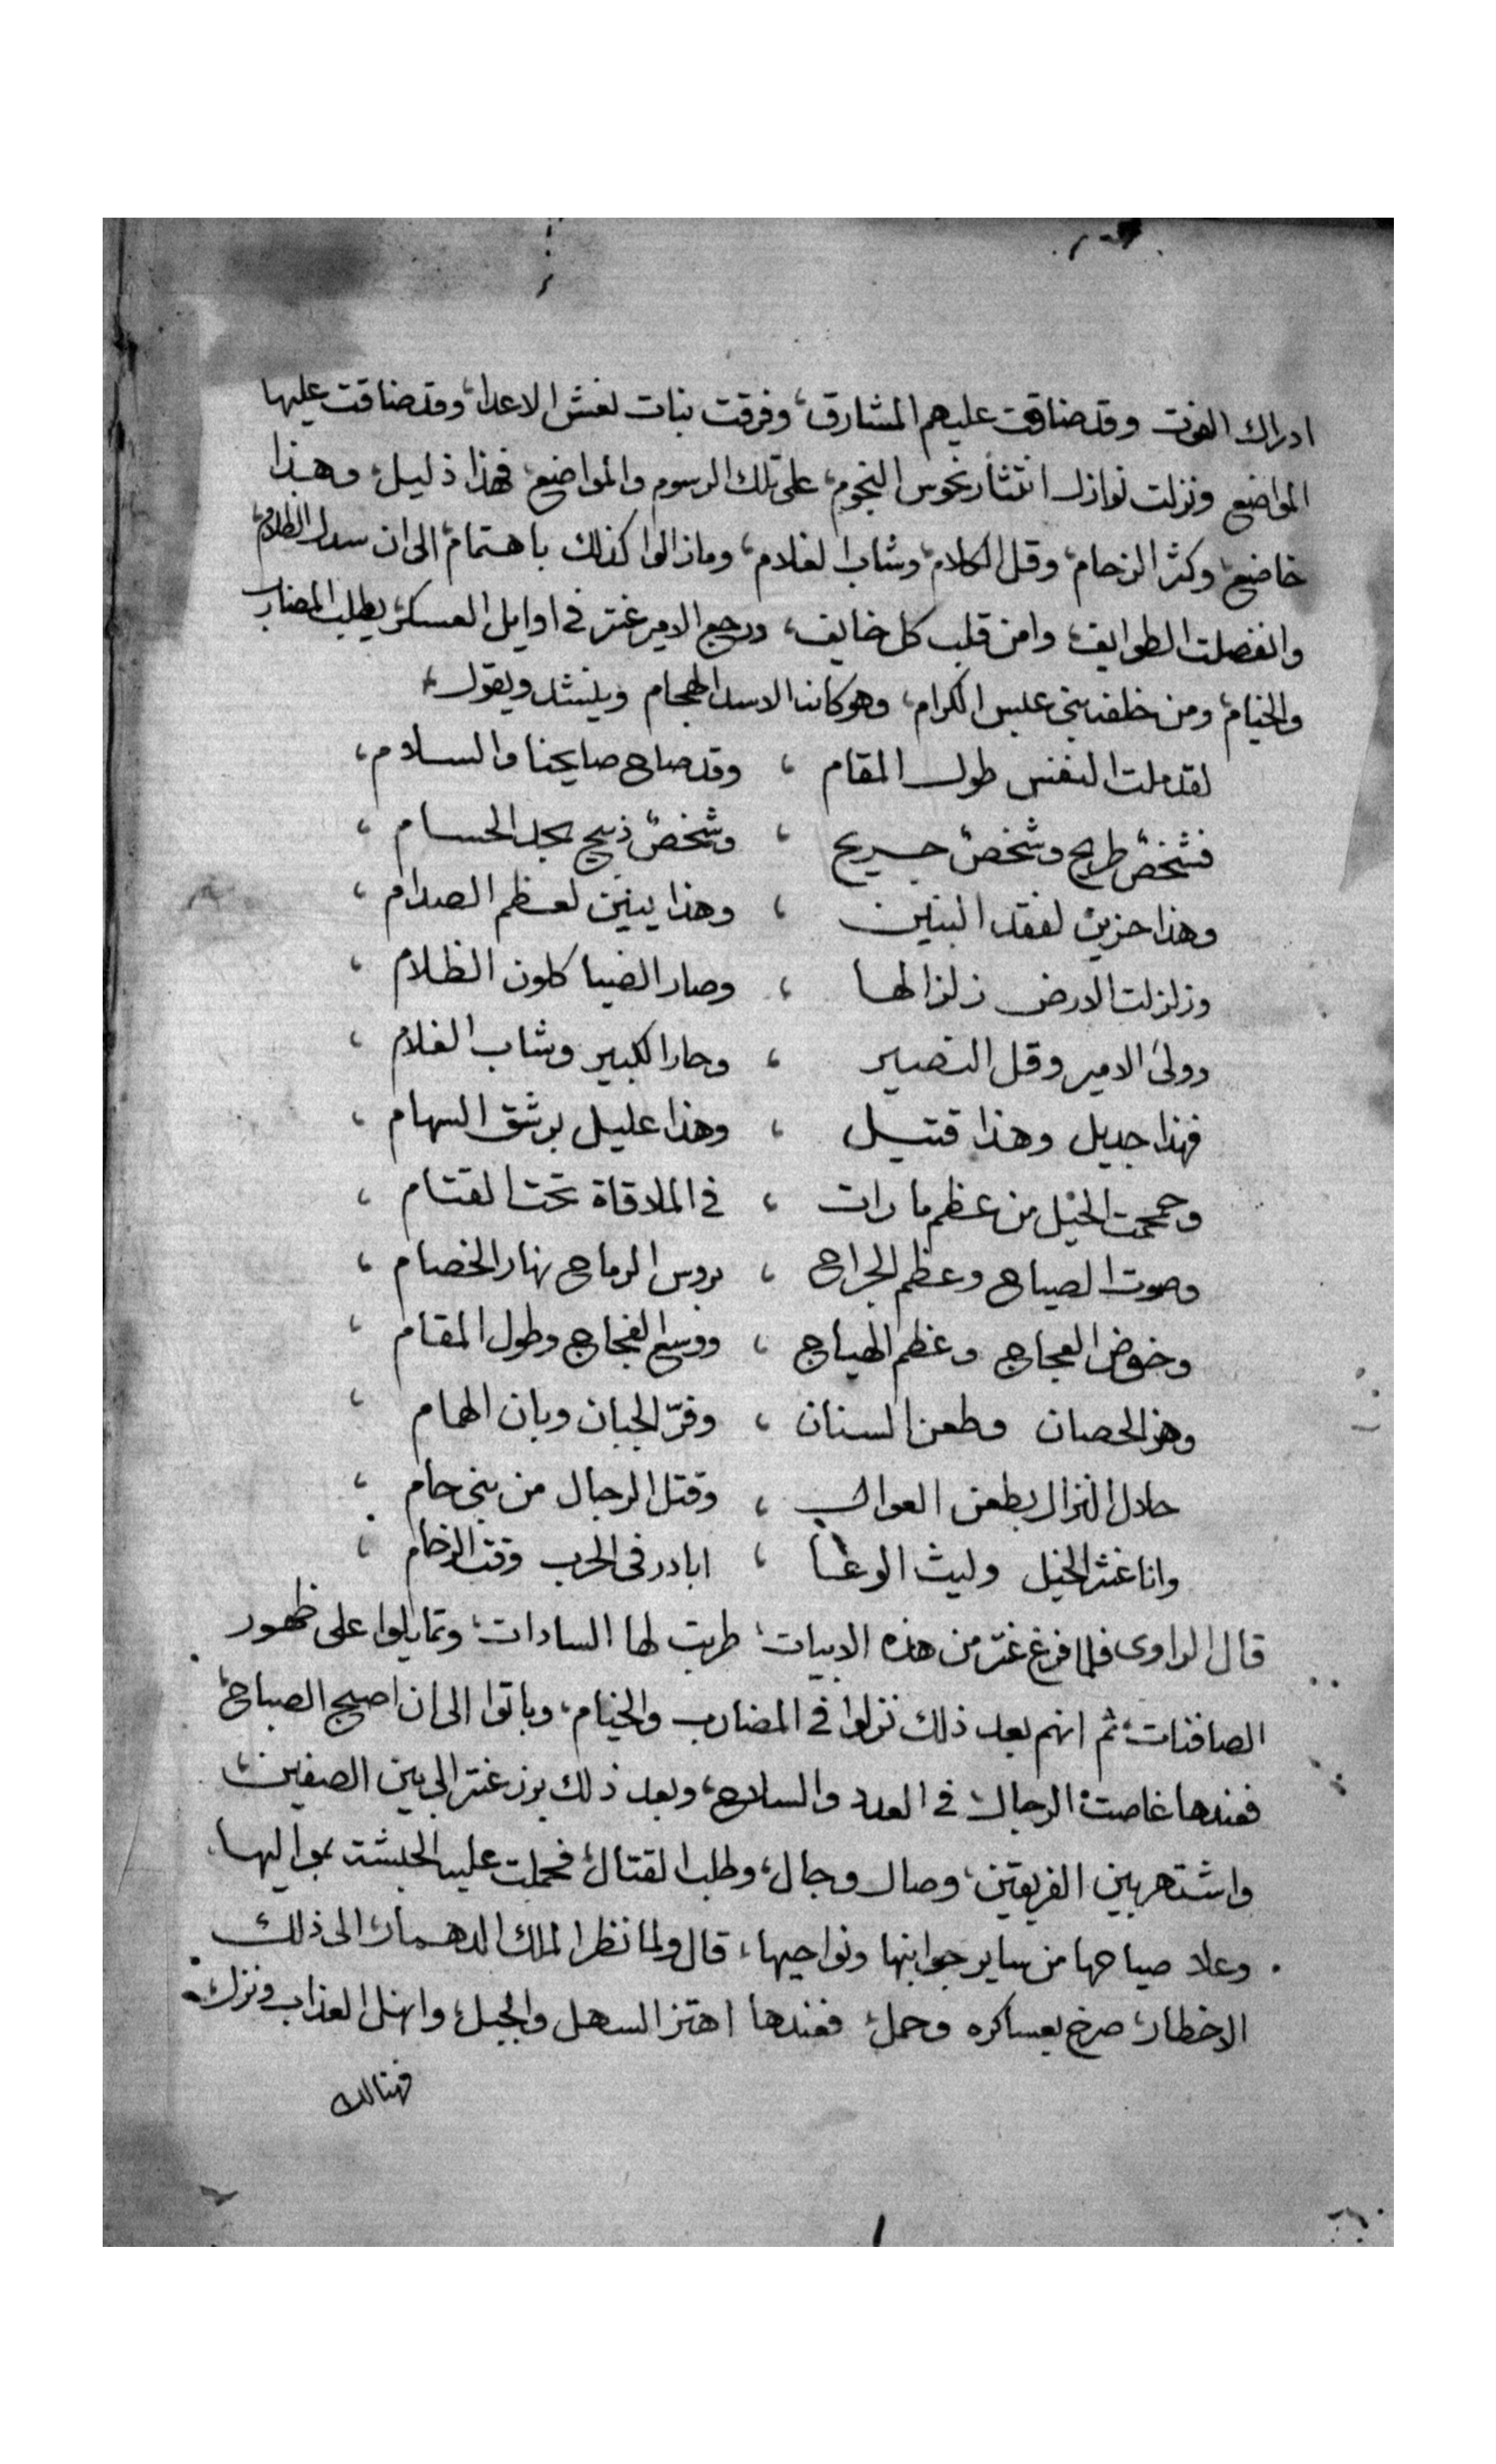 ادراك الفوت وقد ضاقت عليهم المشارق، وفرقت بنات نعش الاعدا، وقد ضاقت عليها
المواضع ونزلت نوازل انتثار نحوس النجوم، على تلك الرسوم والمواضع، فهذا ذليل، وهذا
خاضع، وكثر الزحام، وقل الكلام، وشاب الغلام، وما زالوا كذلك باهتمام، الى ان سدل الظلام،
وانفصلت الطوايف، وامن قلب كل خايف، ورجع الامير عنتر في اوايل العسكر، يطلب المضارب
والخيام، ومن خلفه بني عبس الكرام، وهو كانه الاسد الهجام وينشد ويقول،
لقد ملت النفس طول المقام ، وقد صاح صايحنا والسلام،
فشخصٌ طريح وشخصٌ جريح ، وشخصٌ ذبيح بحد الحسام ،
وهذا حزين لفقد البنين ، وهذا يبين لعظم الصدام ،
وزلزلت الارض زلزالها ، وصار الضيا كلون الظلام ،
وولى الامير وقل النصير ، وحار الكبير وشاب الغلام ،
فهذا جديل وهذا قتيل ، وهذا عليل برشق السهام ،
وحمحمت الخيل من عظم ما رات ، في الملاقاة تحت القتام ،
وصوت الصياح وعظم الجراح ، بروس الرماح نهار الخصام ،
وخوض العجاج وعظم الهياج ، ووسع الفجاج وطول المقام ،
وهز الحصان وطعن السنان ، وفرّ الجبان وبان الهمام ،
حلال النزال بطعن العوالي ، وقتل الرجال من بني حام ،
وانا عنتر الخيل وليث الوغا ، ابادر في الحرب وقت الزحام ،
قال الراوى فلما فرغ عنتر من هذه الابيات، طربت لها السادات، وتمايلوا على ظهور
الصافنات، ثم انهم بعد ذلك نزلوا في المضارب والخيام، وباتوا الى ان اصبح الصباح،
فعندها غاصت الرجال في العدد والسلاح، وبعد ذلك برز عنتر الى بين الصفين،
واشتهر بين الفريقين، وصال وجال، وطلب القتال، فحملت عليه الحبشة بمواليها،
وعلا صياحها من ساير جوانبها ونواحيها، قال ولما نظر الملك الدهمار، الى ذلك
الاخطار، صرخ بعساكره وحمل، فعندها اهتز السهل والجبل، وانهل العذاب ونزل،
فهنالك